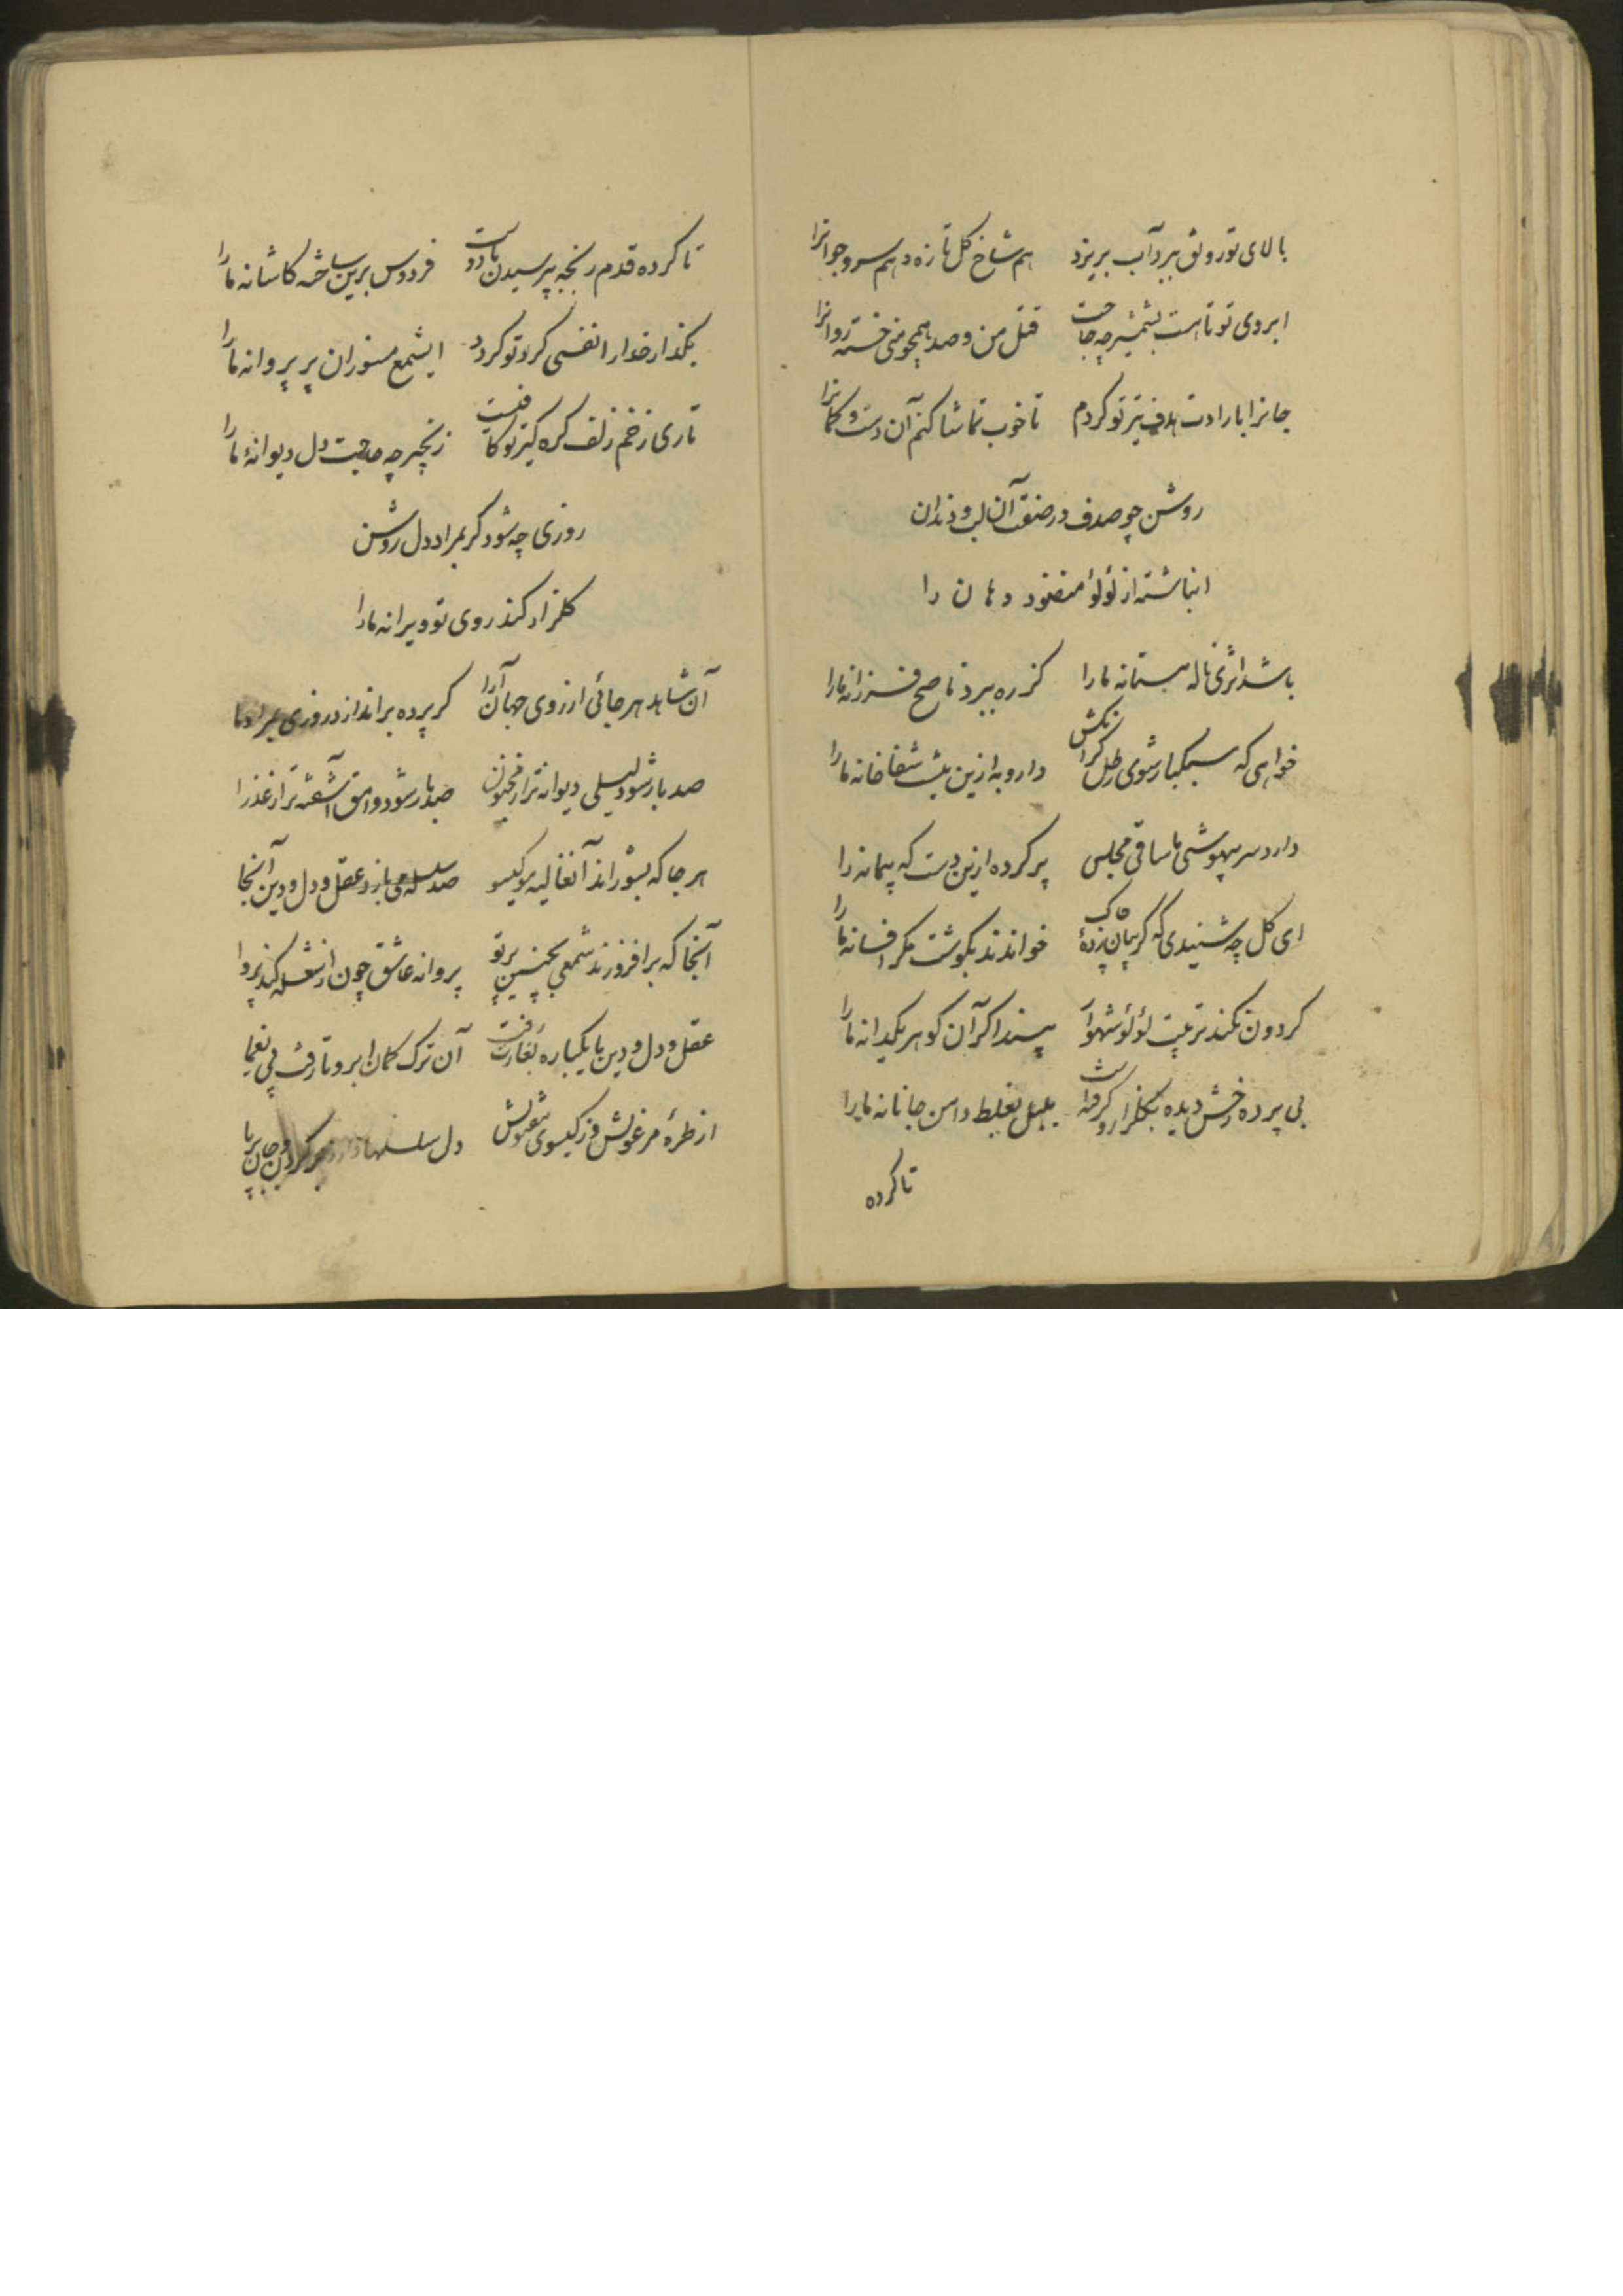 بالای تو رونق ببرد آب بریزد هم شاخ کل تازه و هم سرو جوانرا
ابروی تو تا هست بشمشیر چه حاجت قتل من و صد همچو منی خسته روانرا
جانرا بارادت هدف تیر تو کردم تا خوب تماشا کنم آن دست و کمانرا
روشن چو صدف در صفت آن لب و دندان
انباشته از لؤلؤ منضود دهان را
باشد اثری ناله مستانه ما را کز ره ببرد ناصح فرزانه ما را
خواهی که سبکبار شوی رطل کران کش دارو به ازین نیست شفاخانه ما را
دارد سر بیهوشی ما ساقی مجلس پر کرده ازین دست که پیمانه را
ای کل چه شنیدی که کریبان زدهٔ چاک خواندند بکوشت مکر افسانه ما را
کردون نکند تربیت لؤلؤ شهوار بیند اکر آن کوهر یکدانه ما را
بی پرده رخش دیده بکلزار و کرفته است بلبل بغلط دامن جانانه ما را
تا کرده
تا کرده قدم رنجه بپرسیدن ما دوست فردوس برین ساخته کاشانه ما را
بکذار خدا را نفسی کرد تو کردد ایشمع مسوزان پر پروانه ما را
تاری ز خم زلف کره کیر تو کافیست زنجیر چه حاجت دل دیوانهٔ ما را
روزی چه شود کر بمراد دل روشن
کلزار کند روی تو ویرانه ما را
آن شاهد هر جائی از روی جهان آرا کر پرده براندازد روزی بمراد ما
صد بار شود لیلی دیوانه تر از مجنون صد بار شود وامق آشفته تر از عذرا
هر جا که بشوراند آن غالیه مو کیسو صد سلسله می بازد عقل و دل و دین آنجا
آنجا که برافروزند شمعی بچنین پرتو پروانه عاشق چون از شعله کند پروا
عقل و دل و دین ما یکباره بغارت رفت آن ترک کمان ابرو تا رفت پی یغما
از طرهٔ مرغولش وز کیسوی مفتولش دل سلسلها دارد بر کردن و جان بر پا